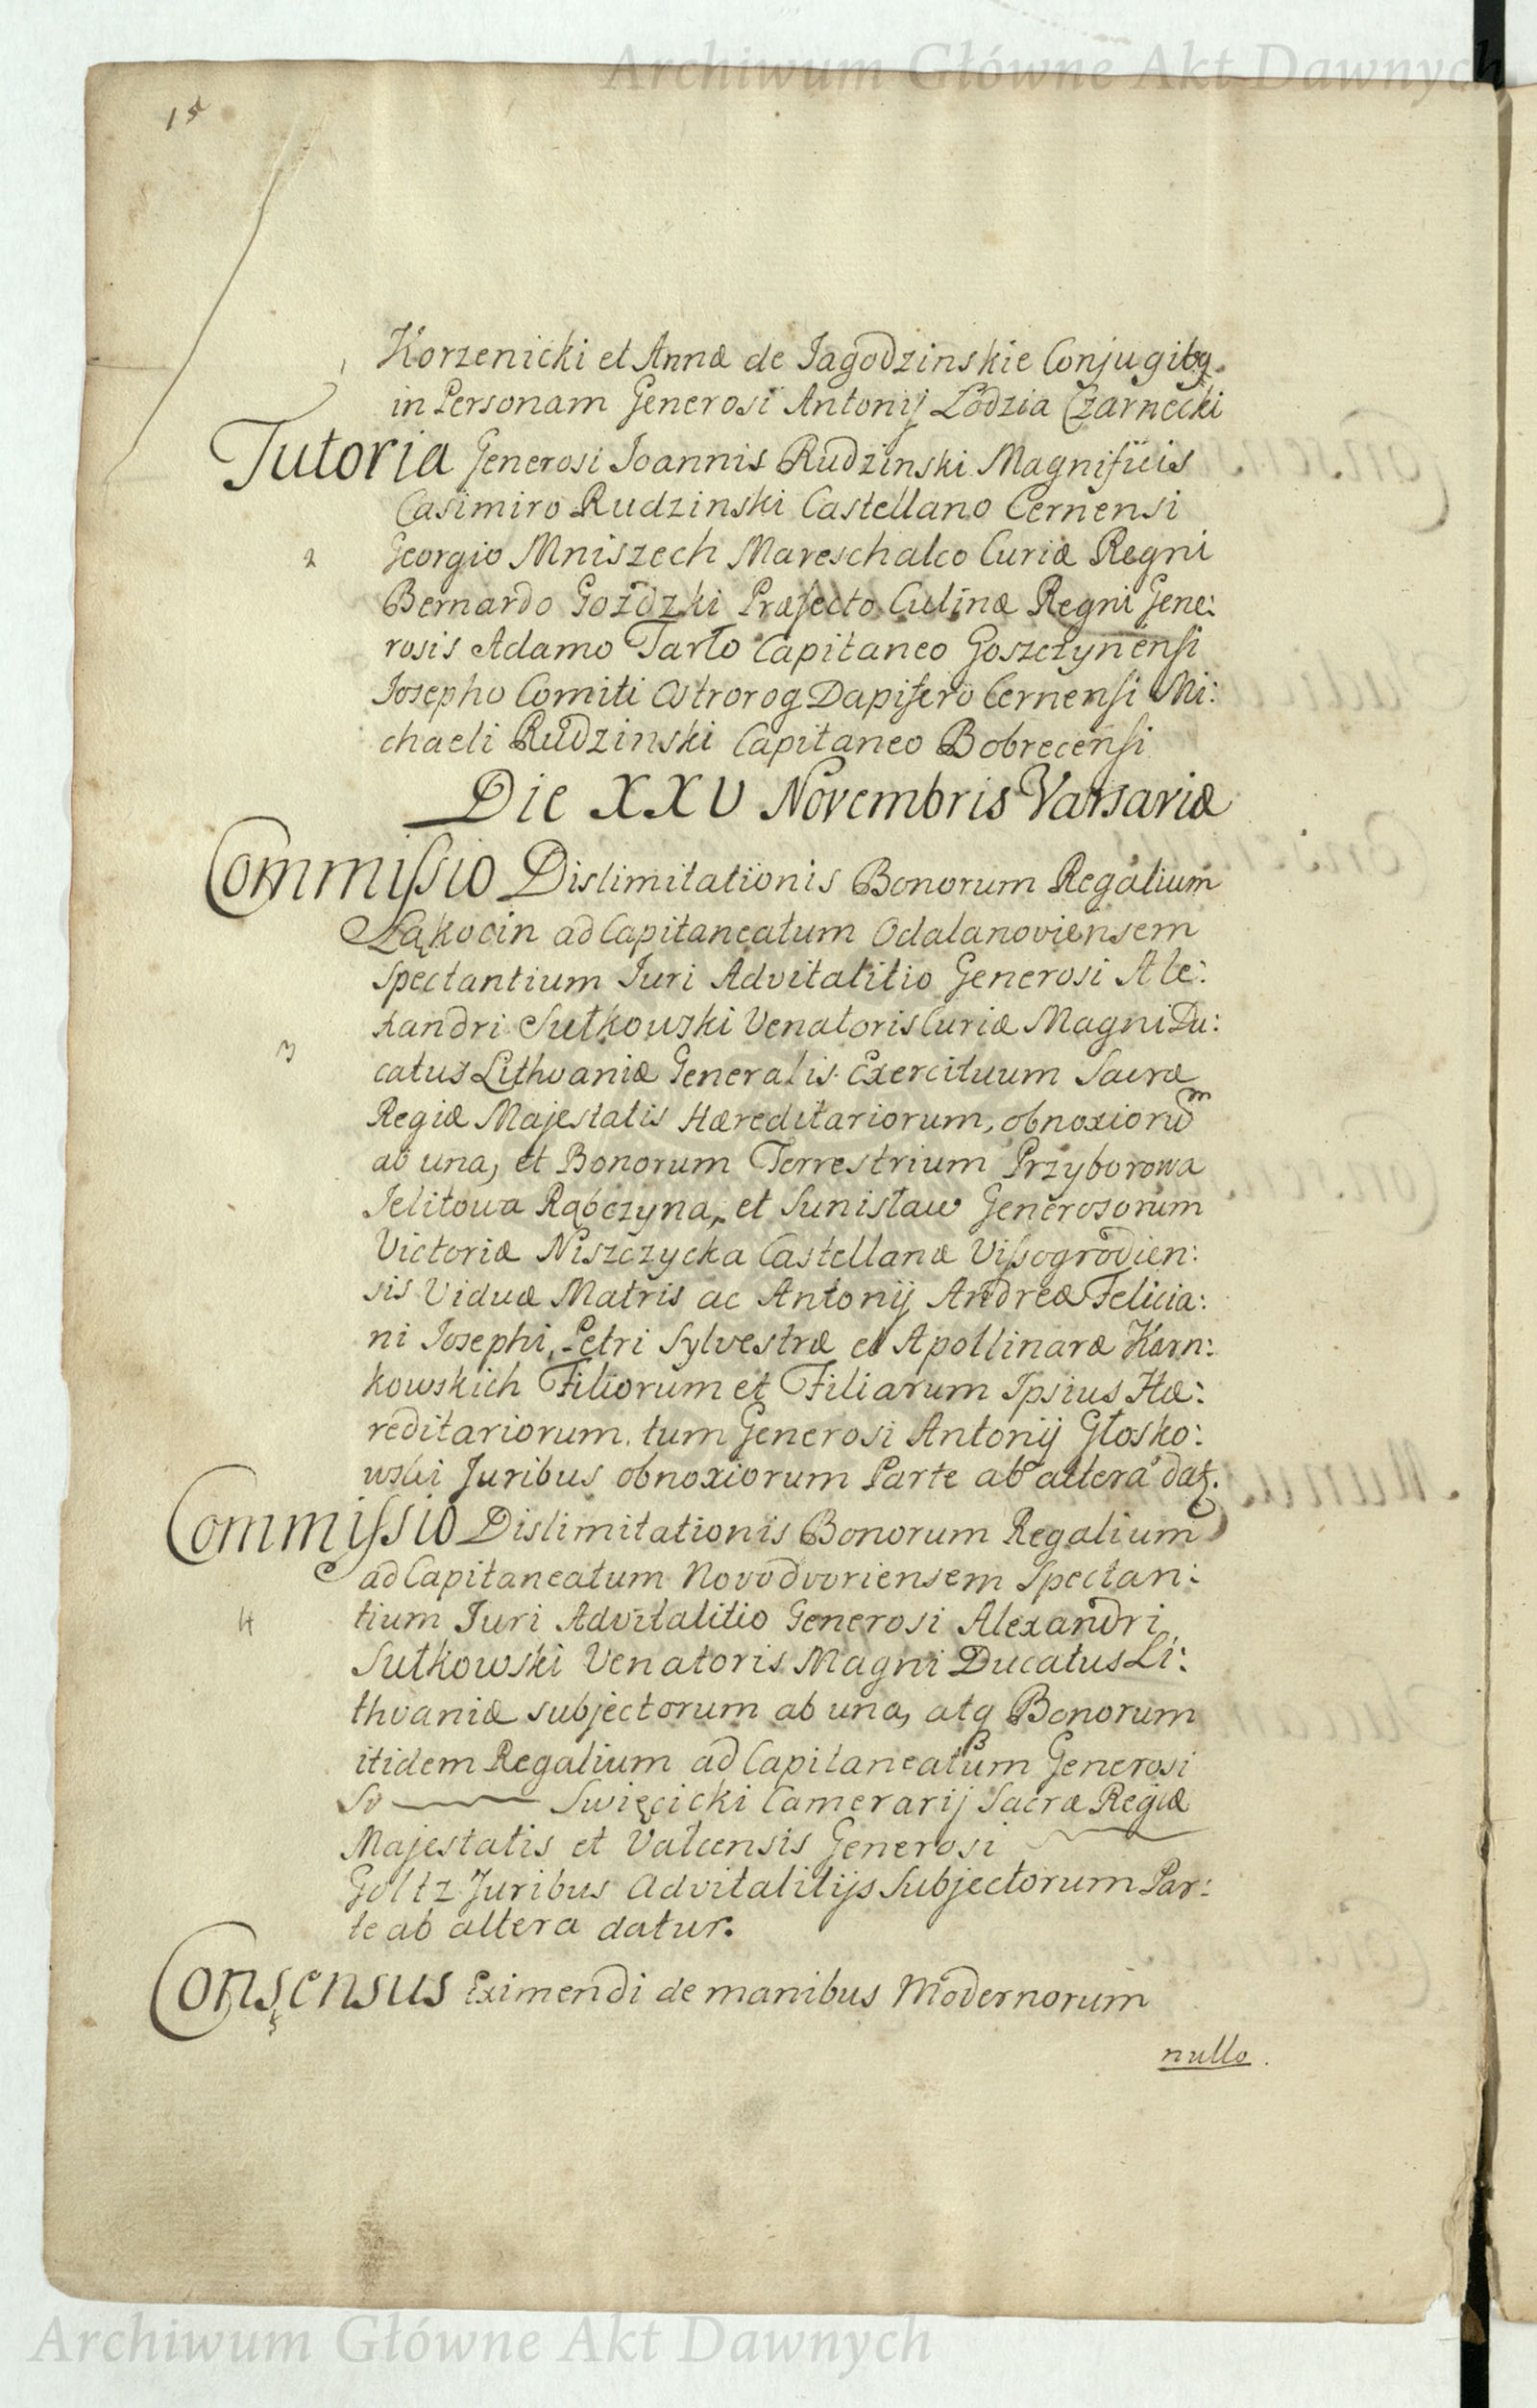 Archiwum Główne Akt Dawnych
15
Korzenicki et Annæ de Jagodzinskie Conjugibq.
in Personam Generosi Antonij Lodzia Czarnecki
Tutoria Generosi Joannis Rudzinski Magnificis
Casimiro Rudzinski Castellano Cernensi
2
Georgio Mniszech Mareschalco Curiæ Regni
Bernardo Gozdzki Præfecto Culinæ Regni Gene:
rosis Adamo Tarło Capitaneo Goszczynensi
Josepho Comiti Ostrorog Dapifero Cernensi Mi:
chaeli Rudzinski Capitaneo Bobrecensi
Die XXV Novembris Varsaviæ
Commissio Dislimitationis Bonorum Regalium
Łąkocin ad Capitaneatum Odalanoviensem
Spectantium Juri Advitalitio Generosi Ale:
xandri Sułkowski Venatoris Curiæ Magni Du:
3
catus Lithvaniæ Generalis Exercituum Sacræ
Regiæ Majestatis Hæreditariorum, obnoxioru͞m
ab una, et Bonorum Terrestrium Przyborowa
Jelitowa Rąbczyna, et Sunisław Generosorum
Victoriæ Niszczycka Castellanæ Vissogrodien:
sis Viduæ Matris ac Antonij Andreæ Felicia:
ni Josephi, Petri Sylvestræ et Apollinaræ Karn:
kowskich Filiorum et Filiarum Ipsius Hæ:
reditariorum. tum Generosi Antonij Głosko:
wski Juribus obnoxiorum Parte ab altera datz.
Commissio Dislimitationis Bonorum Regalium
ad Capitaneatum Novodvoriensem Spectan:
4
tium Juri Advitalitio Generosi Alexandri
Sułkowski Venatoris Magni Ducatus Li:
thvaniæ subjectorum ab una, atq Bonorum
itidem Regalium ad Capitaneatum Generosi
Sv Swięcicki Camerarij Sacræ Regiæ
Majestatis et Vałcensis Generosi
Goltz Juribus Advitalitijs Subjectorum Par:
te ab altera datur.
Consensus Eximendi de manibus Modernorum
nullo.
Archiwum Główne Akt Dawnych